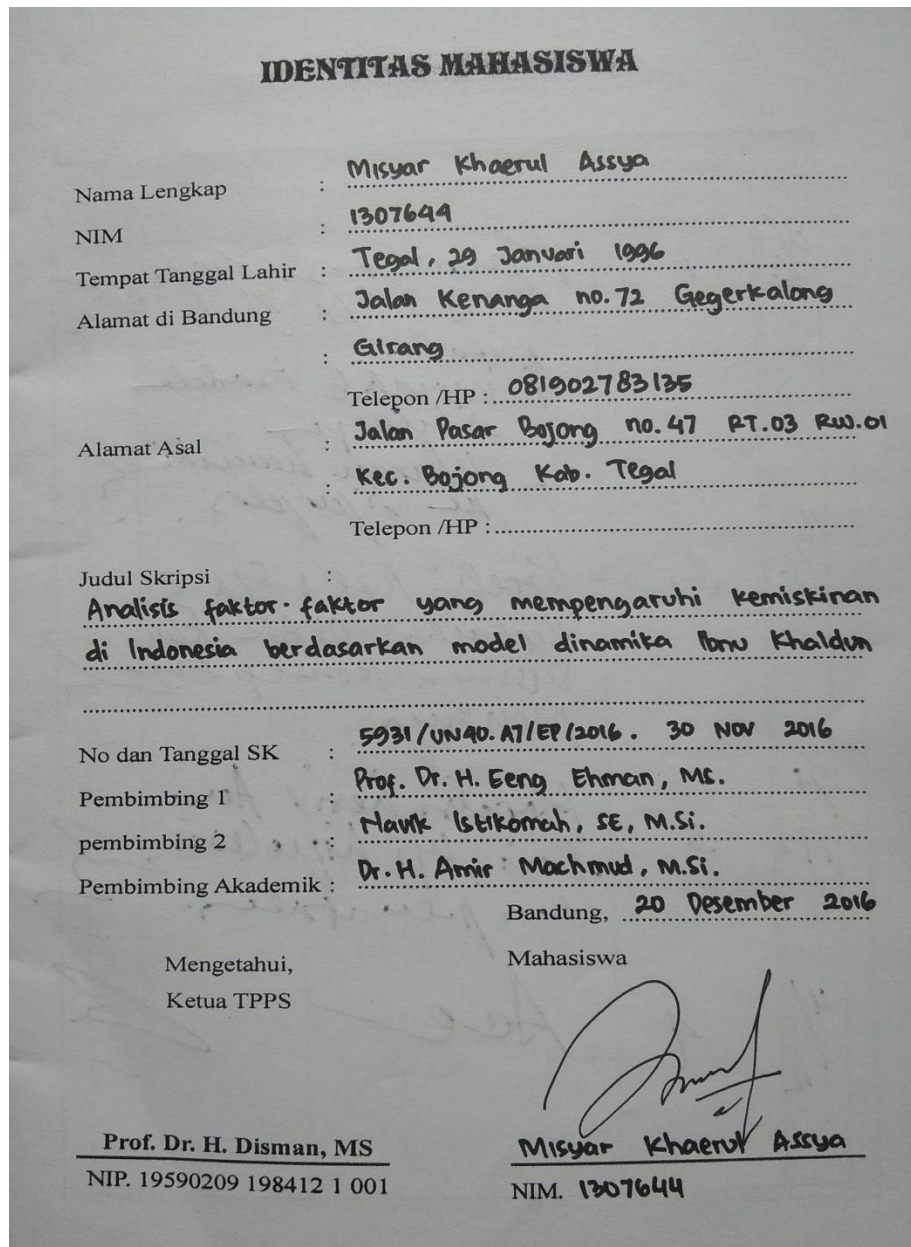 IDENTITAS MAHASISWA
Nama Lengkap : Misyar Khaerul Assya
NIM : 1307644
Tempat Tanggal Lahir : Tegal, 29 Januari 1996
Alamat di Bandung : Jalan Kenanga no.72 Gegerkalong
: Girang
Telepon /HP : 081902783135
Alamat Asal : Jalan Pasar Bojong no.47 RT.03 RW.01
: Kec. Bojong Kab. Tegal
Telepon /HP :
Judul Skripsi :
Analisis faktor-faktor yang mempengaruhi kemiskinan
di Indonesia berdasarkan model dinamika Ibnu Khaldun
No dan Tanggal SK : 5931/UN40.A7/EP/2016. 30 NOV 2016
Pembimbing 1 : Prof. Dr. H. Eeng Ehman, MS.
pembimbing 2 : Navik Istikomah, SE, M.Si.
Pembimbing Akademik : Dr. H. Amir Machmud, M.Si.
Bandung, 20 Desember 2016
Mengetahui,
Ketua TPPS
Mahasiswa
Prof. Dr. H. Disman, MS
NIP. 19590209 198412 1 001
Misyar Khaerul Assya
NIM. 1307644